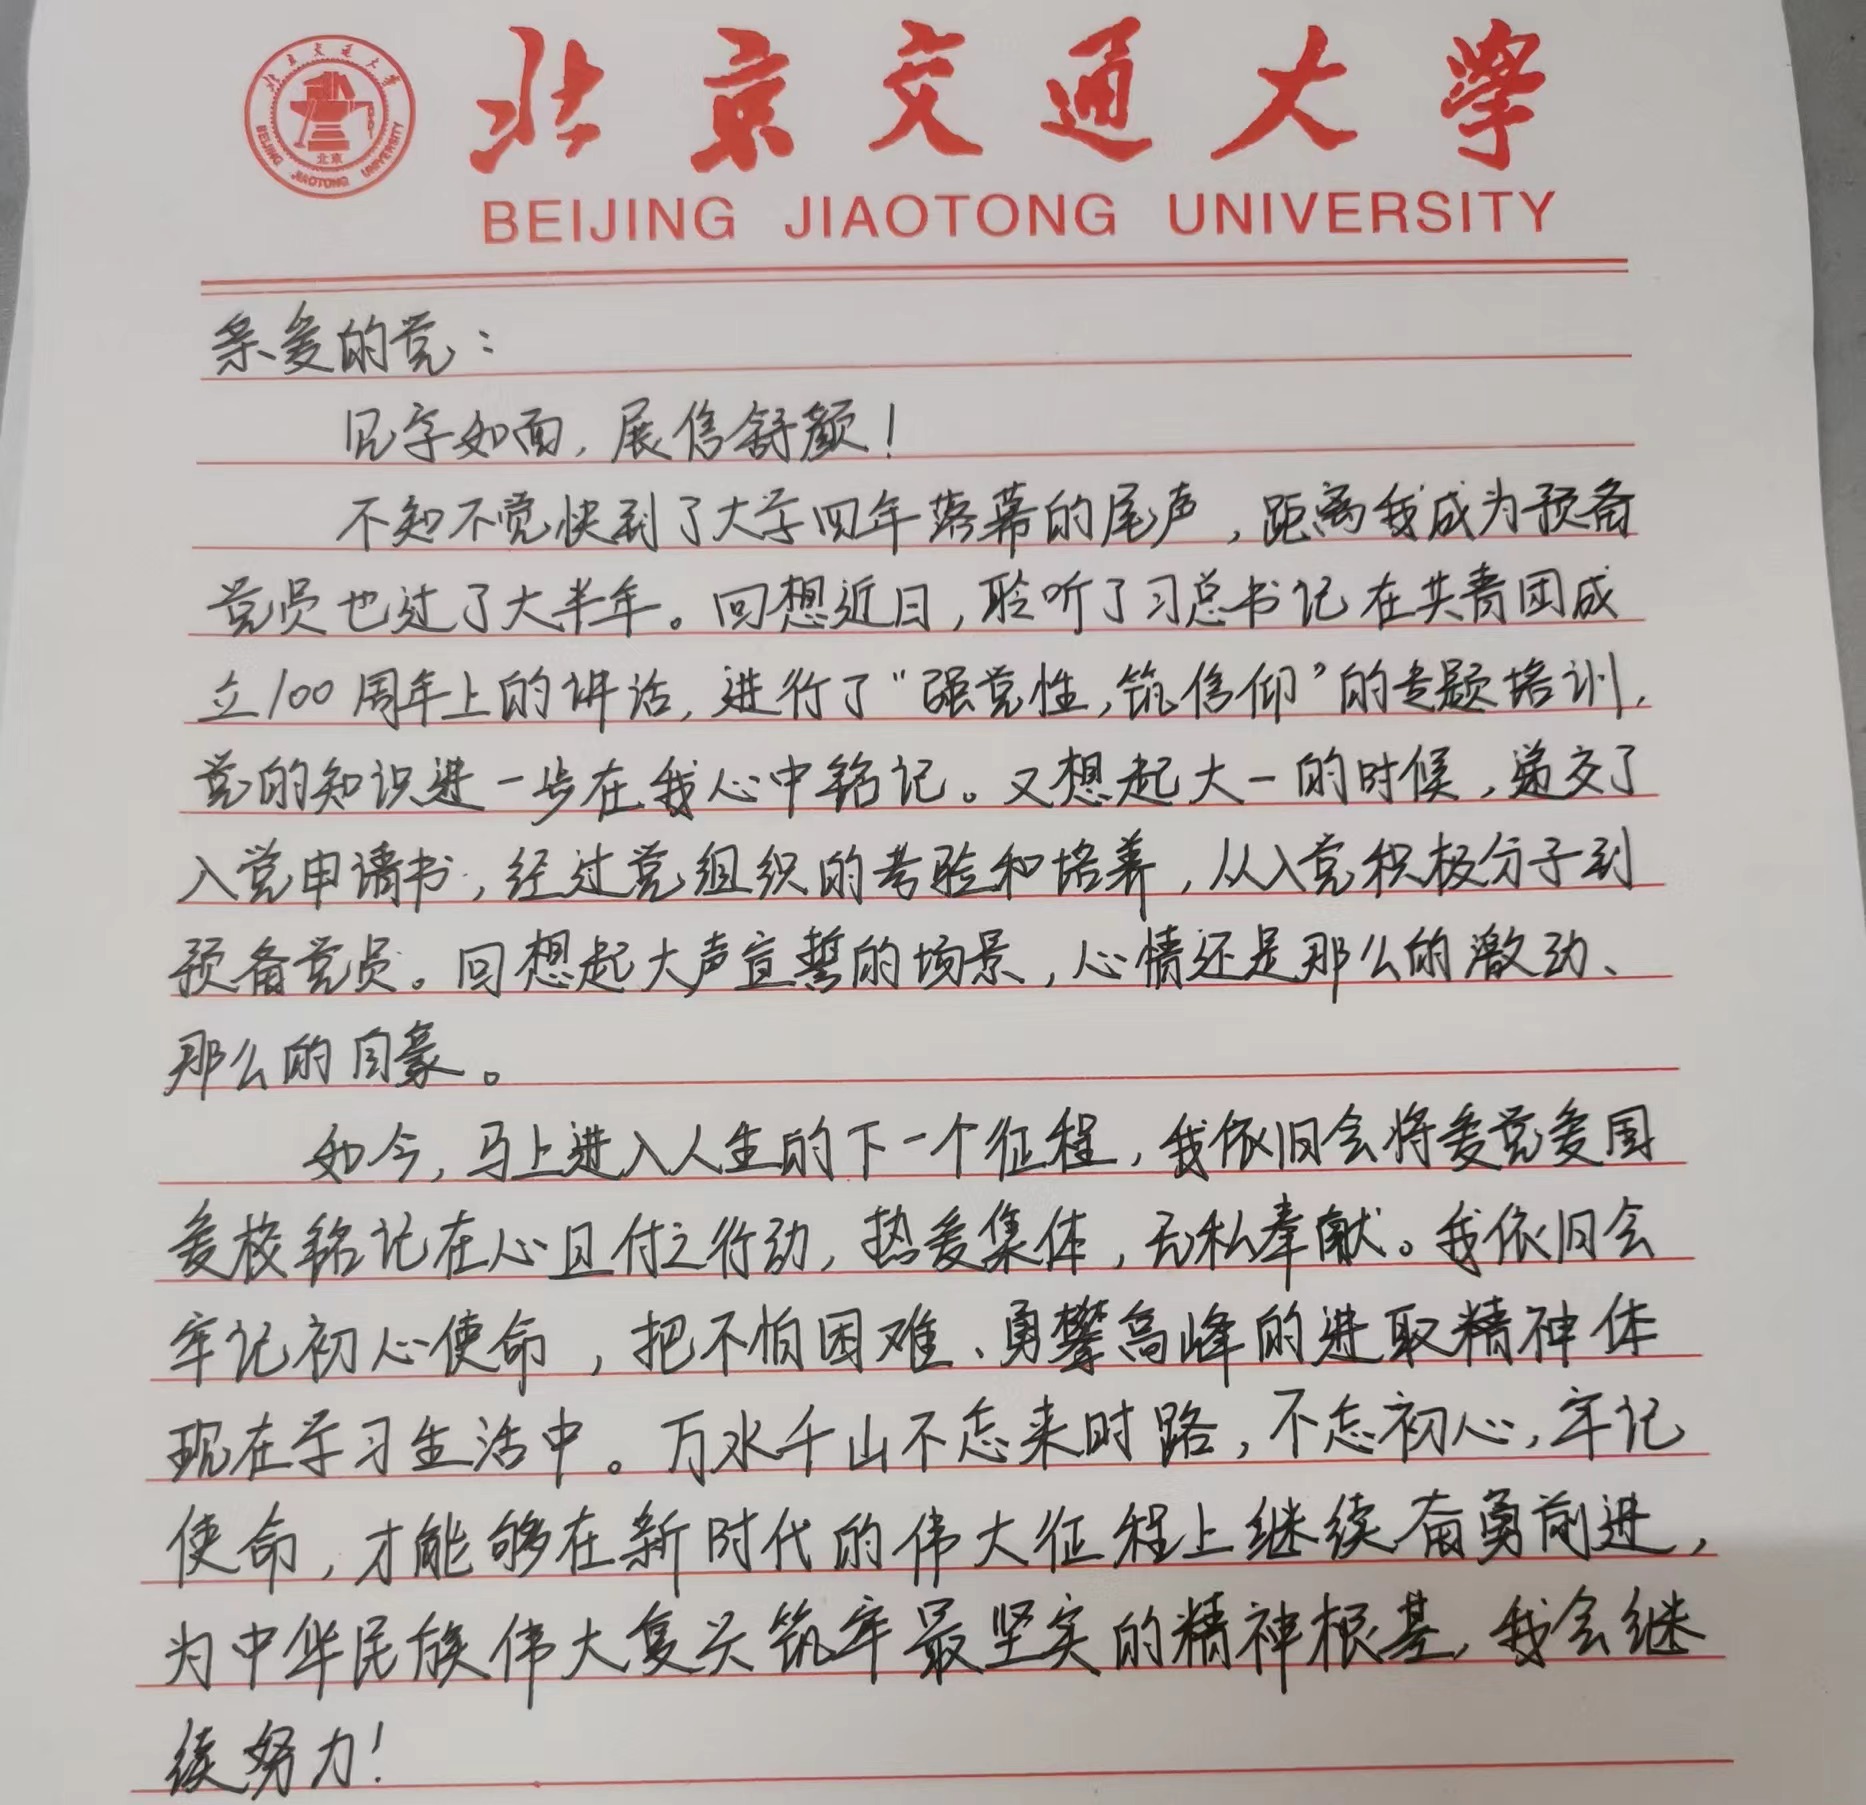 北京交通大学
BEIJING JIAOTONG UNIVERSITY
北京交通大学
北京
BEIJING JIAOTONG UNIVERSITY
亲爱的党：
见字如面，展信舒颜！
不知不觉快到了大学四年落幕的尾声，距离我成为预备
党员也过了大半年。回想近日，聆听了习总书记在共青团成
立100周年上的讲话，进行了“强党性，筑信仰”的专题培训，
党的知识进一步在我心中铭记。又想起大一的时候，递交了
入党申请书，经过党组织的考验和培养，从入党积极分子到
预备党员。回想起大声宣誓的场景，心情还是那么的激动、
那么的自豪。
如今，马上进入人生的下一个征程，我依旧会将爱党爱国
爱校铭记在心且付之行动，热爱集体，无私奉献。我依旧会
牢记初心使命，把不怕困难、勇攀高峰的进取精神体
现在学习生活中。万水千山不忘来时路，不忘初心，牢记
使命，才能够在新时代的伟大征程上继续奋勇前进，
为中华民族伟大复兴筑牢最坚实的精神根基，我会继
续努力！